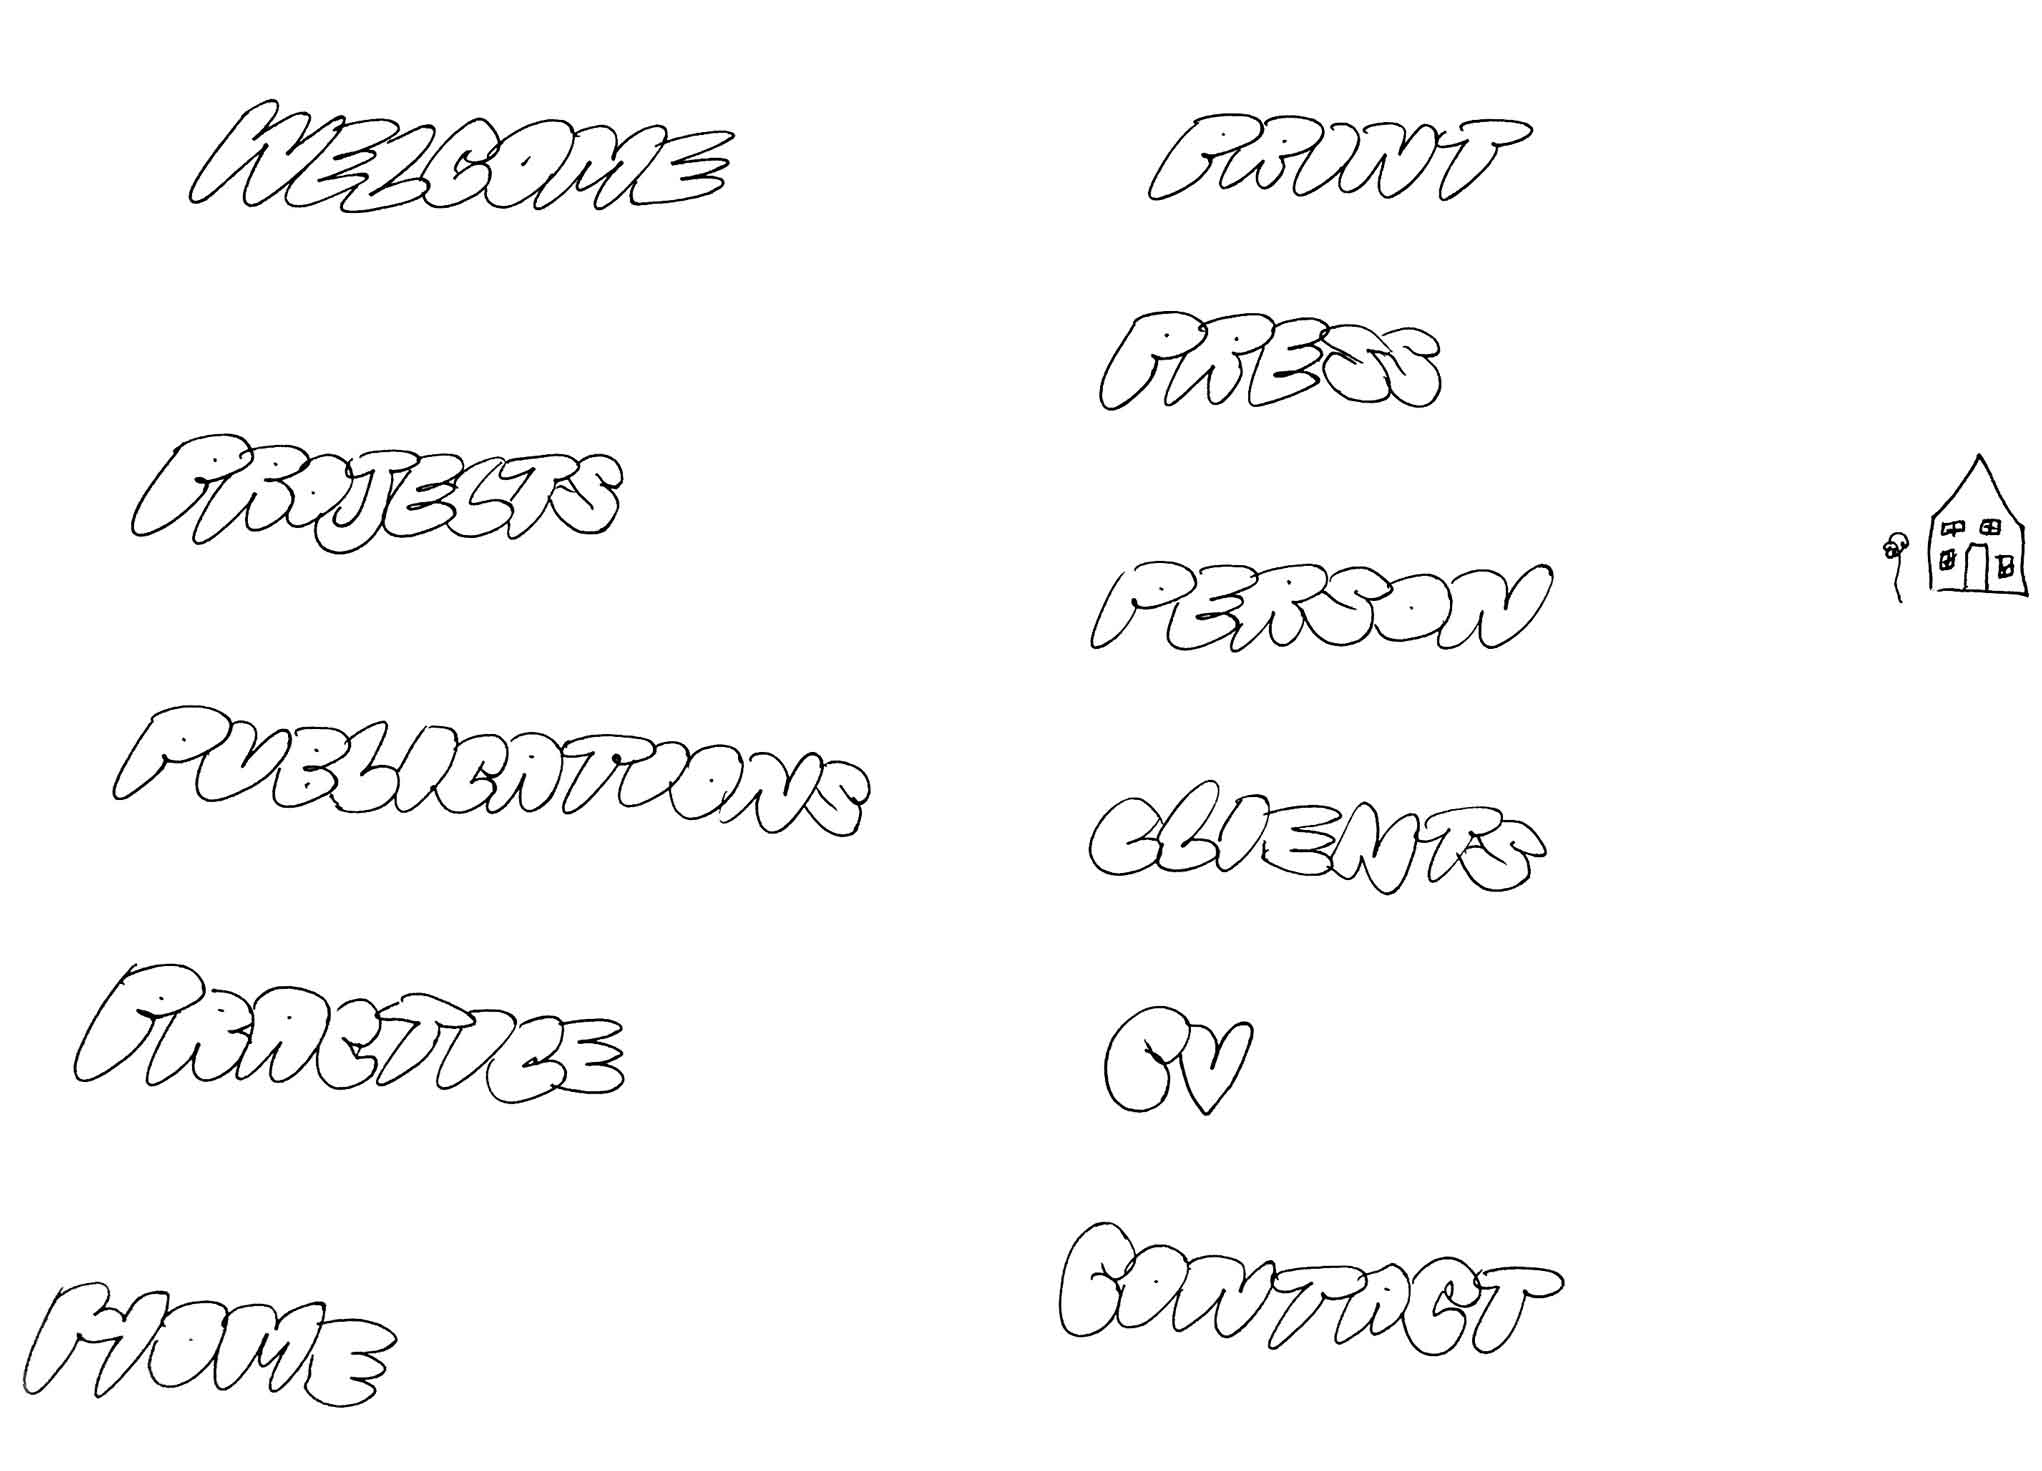 WELCOME
PROJECTS
PUBLICATIONS
PRACTICE
HOME
PRINT
PRESS
PERSON
CLIENTS
CV
CONTACT